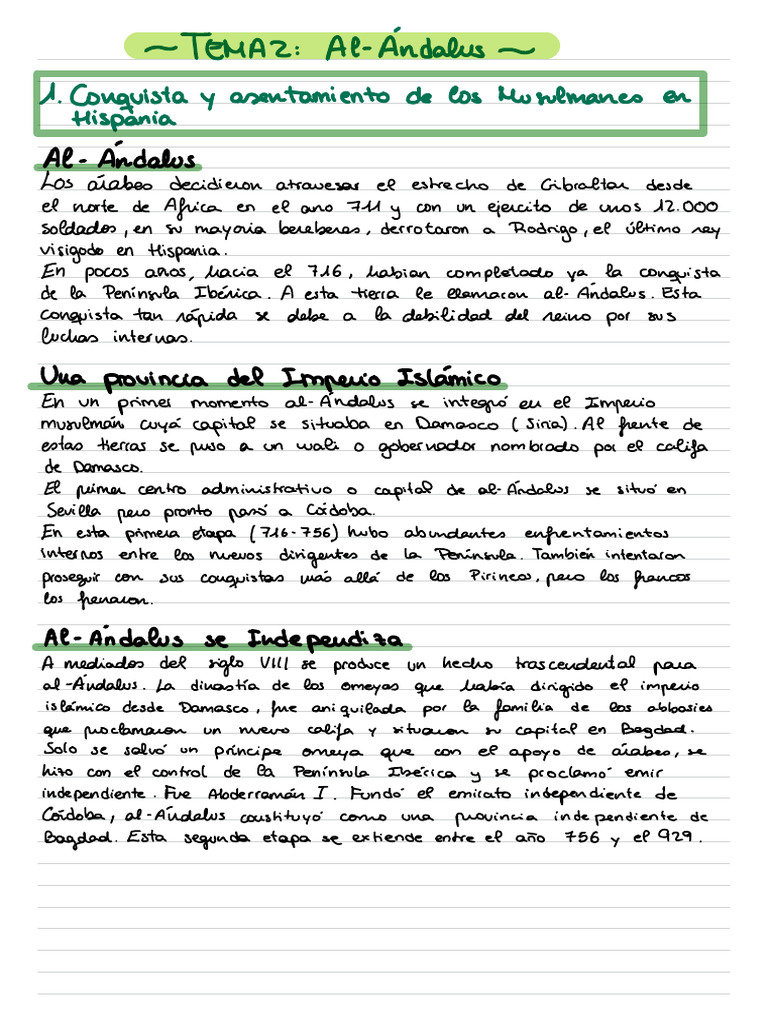 ~ TEMA 2: Al-Ándalus ~
1. Conquista y asentamiento de los Musulmanes en
Hispania
Al-Ándalus
Los árabes decidieron atravesar el estrecho de Gibraltar desde
el norte de Africa en el ano 711 y con un ejercito de unos 12.000
soldados, en su mayoria bereberes, derrotaron a Rodrigo, el último rey
visigodo en Hispania.
En pocos años, hacia el 716, habian completado ya la conquista
de la Península Ibérica. A esta tierra le llamaron al-Ándalus. Esta
conquista tan rápida se debe a la debilidad del reino por sus
luchas internas.
Una provincia del Imperio Islámico
En un primer momento al-Ándalus se integró en el Imperio
musulmán cuya capital se situaba en Damasco (Siria). Al frente de
estas tierras se puso a un wali o gobernador nombrado por el califa
de Damasco.
El primer centro administrativo o capital de al-Ándalus se situó en
Sevilla pero pronto pasó a Córdoba.
En esta primera etapa (716-756) hubo abundantes enfrentamientos
internos entre los nuevos dirigentes de la Península. También intentaron
proseguir con sus conquistas más allá de los Pirineos, pero los francos
los frenaron.
Al-Ándalus se Independiza
A mediados del siglo VIII se produce un hecho trascendental para
al-Ándalus. La dinastía de los omeyas que había dirigido el imperio
islámico desde Damasco, fue aniquilada por la familia de los abbasies
que proclamaron un nuevo califa y situaron su capital en Bagdad.
Solo se salvó un príncipe omeya que con el apoyo de árabes, se
hizo con el control de la Península Ibérica y se proclamó emir
independiente. Fue Abderramán I. Fundó el emirato independiente de
Córdoba, al-Ándalus constituyó como una provincia independiente de
Bagdad. Esta segunda etapa se extiende entre el año 756 y el 929.